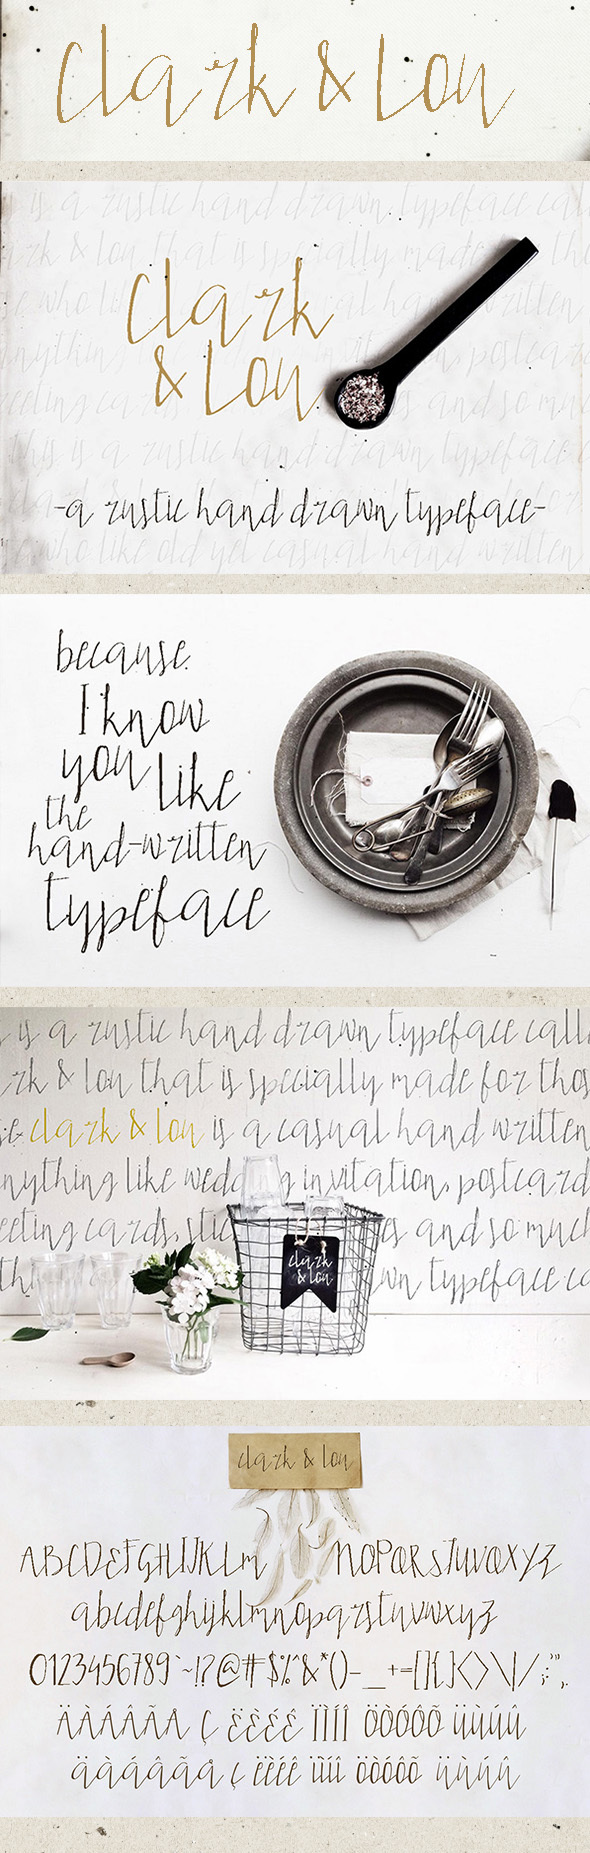 Clark & Lou
is a rustic hand drawn typeface call
ark & lou that is specially made the
e who l ral hand written
nythin invitation, postcar
eetin s and so muc
this is a rustic hand drawn typeface
who like old yet casual hand written
Clark
& Lou
-a rustic hand drawn typeface-
because
I know
you like
the
hand-written
typeface
is is a rustic hand drawn typeface calle
rk & lou that is specially made for thos
e. clark & lou is a casual hand written
nything like wedding invitation, postcard
eeting cards, stic s and so much
th wn typeface ca
clark
& lou
clark & lou
ABCDEFGHIJKLM NOPQRSTUVWXYZ
abcdefghijklmnopqrstuvwxyz
0123456789`~!?@#$%^&*()-_+=[]{}<>\|/;:'",.
ÄÀÁÂÃÅ Ç ËÈÉÊ ÏÌÍÎ ÖÒÓÔÕ ÜÙÚÛ
äàáâãå ç ëèéê ïìíî öòóôõ üùúû